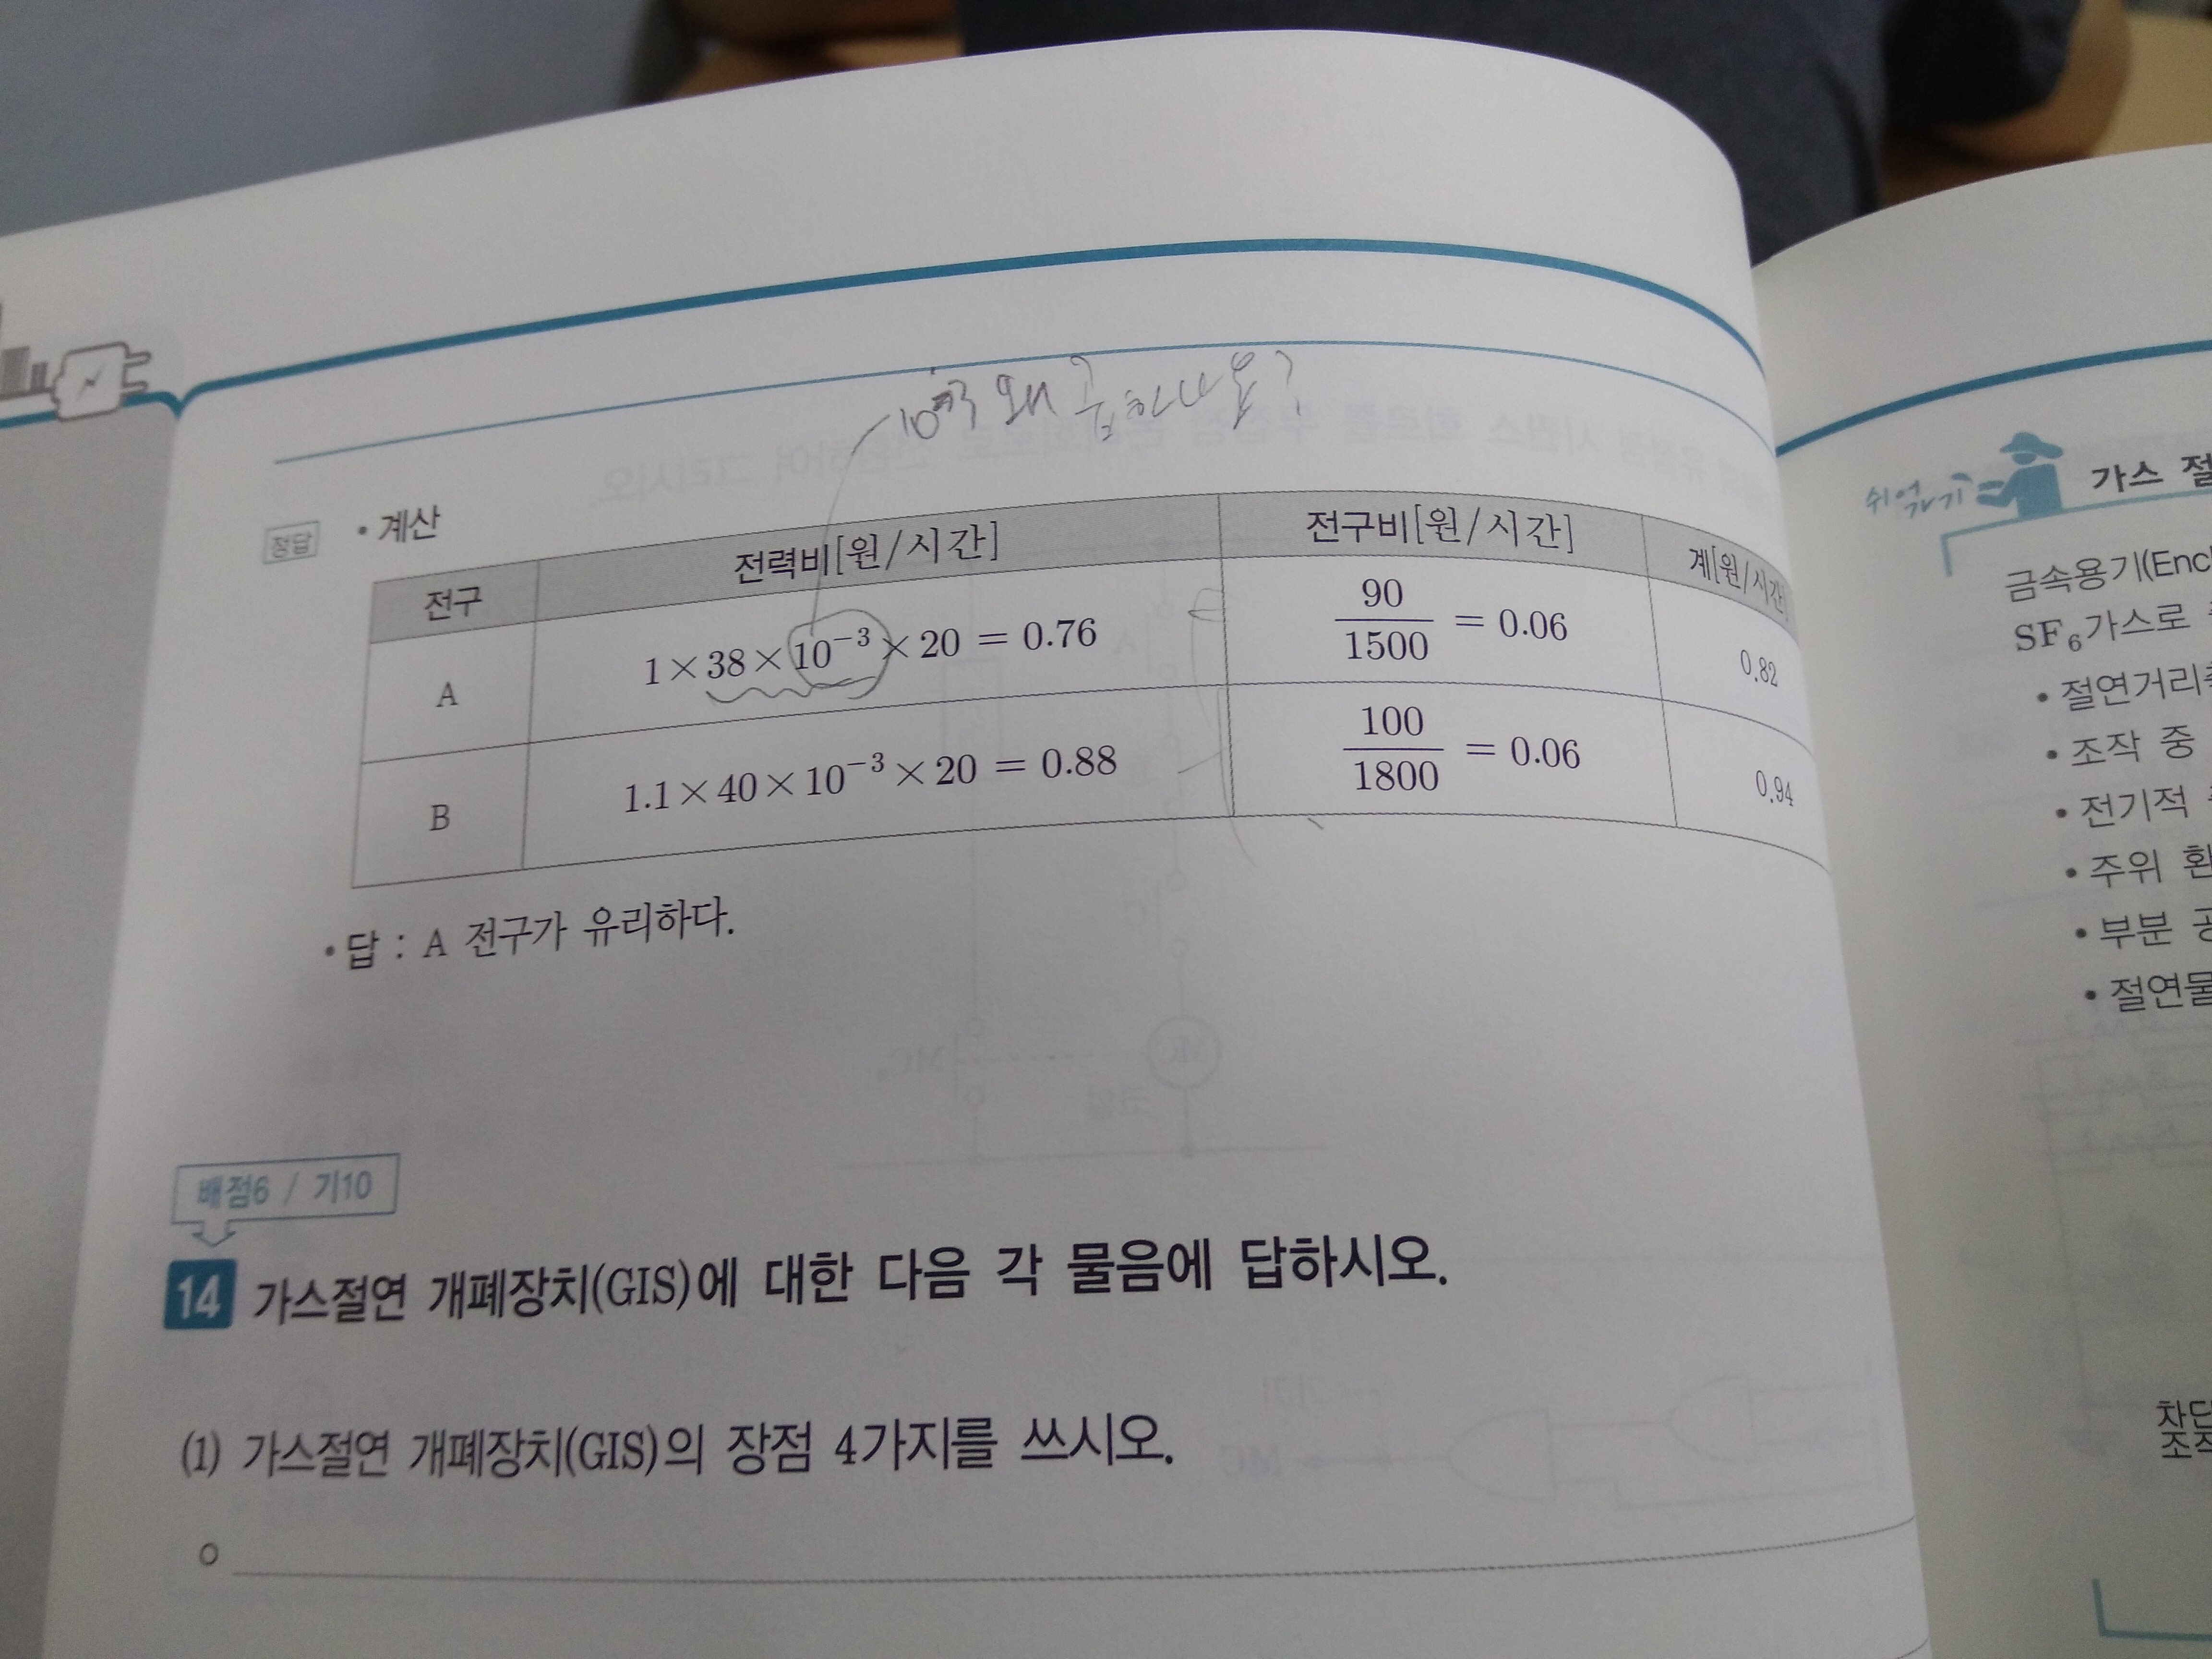 10⁻³ 왜 곱하나요?
정답 • 계산
전구 전력비[원/시간] 전구비[원/시간] 계[원/시간]
A 1×38×10⁻³×20 = 0.76 90/1500 = 0.06 0.82
B 1.1×40×10⁻³×20 = 0.88 100/1800 = 0.06 0.94
• 답 : A 전구가 유리하다.
배점6 / 기10
14 가스절연 개폐장치(GIS)에 대한 다음 각 물음에 답하시오.
(1) 가스절연 개폐장치(GIS)의 장점 4가지를 쓰시오.
가스
금속용기(Encl
SF₆가스로
• 절연거리
• 조작 중
• 전기적
• 주위
• 부분
• 절연물